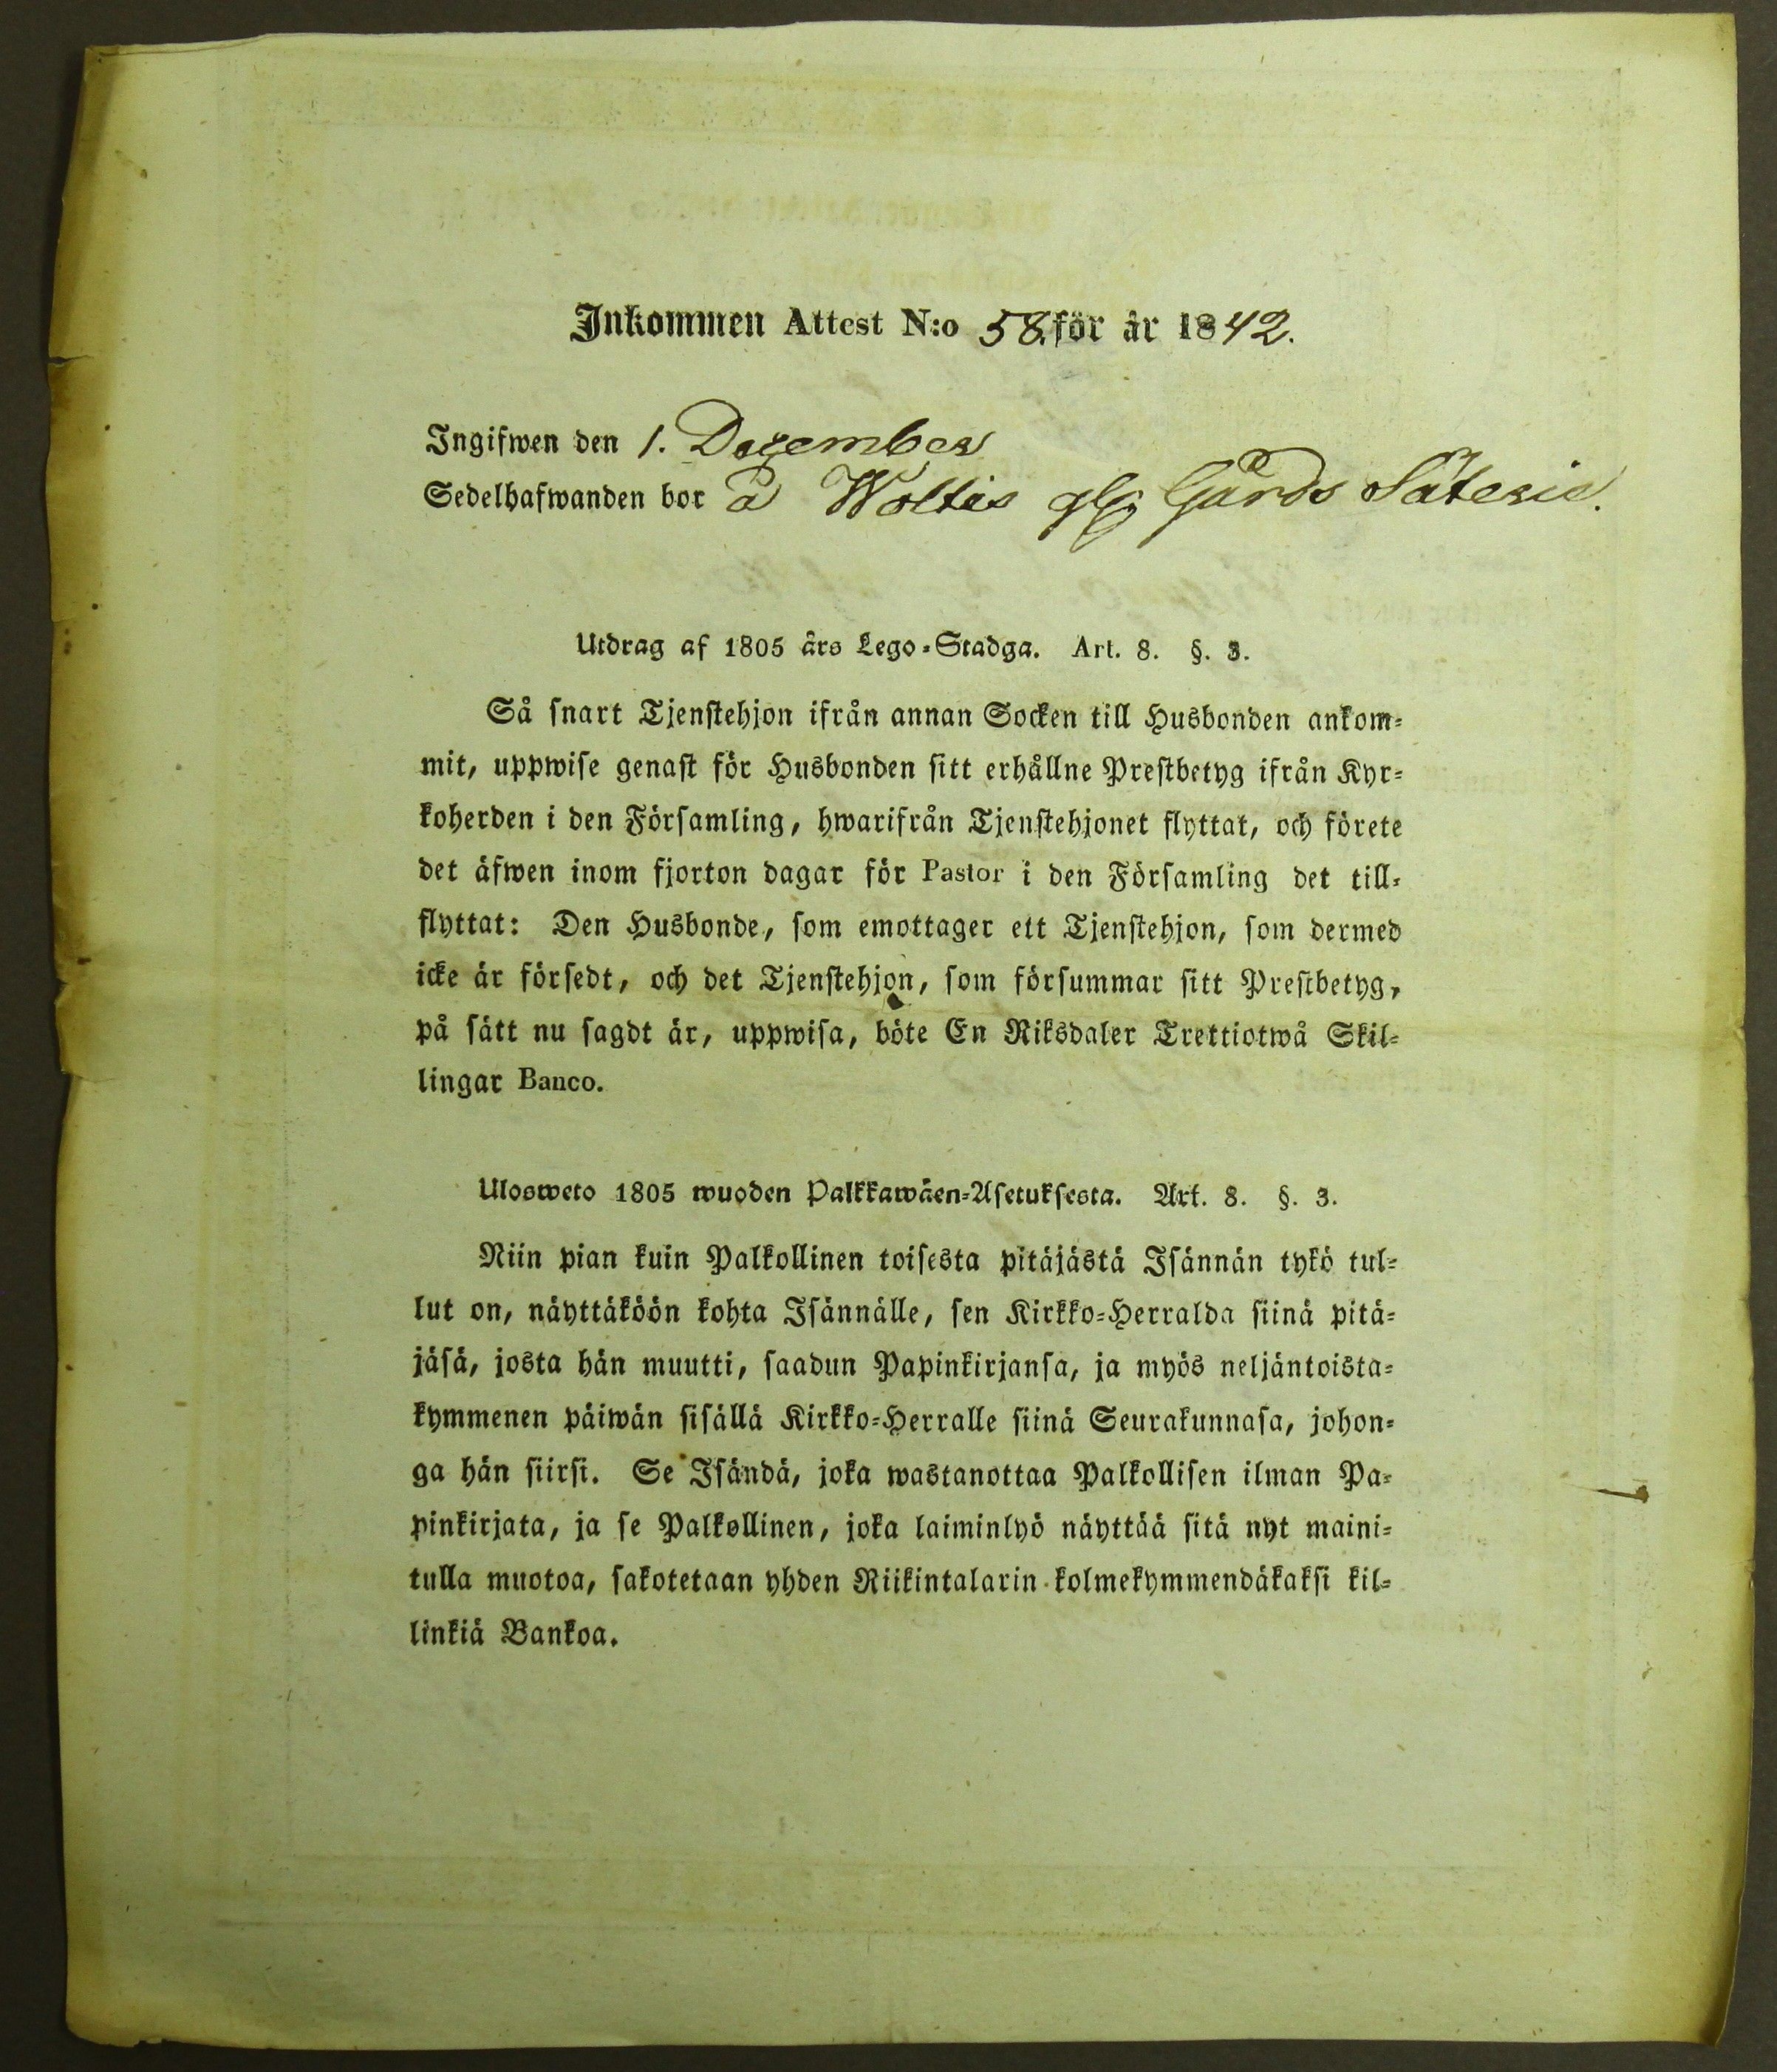 Inkommen Attest N:o 58. för år 1842.
Ingifwen den 1. Dezember
Sedelhafwanden bor å Woltis Gårds Säterie.
Utdrag af 1805 års Lego-Stadga. Art. 8. §. 3.
Så snart Tjenstehjon ifrån annan Socken till Husbonden ankom-
mit, uppwise genast för Husbonden sitt erhållne Prestbetyg ifrån Kyr-
koherden i den Församling, hwarifrån Tjenstehjonet flyttat, och förete
det äfwen inom fjorton dagar för Pastor i den Församling det till-
flyttat: Den Husbonde, som emottager ett Tjenstehjon, som dermed
icke är försedt, och det Tjenstehjon, som försummar sitt Prestbetyg,
på sätt nu sagdt är, uppwisa, böte En Riksdaler Trettiotwå Skil-
lingar Banco.
Ulosweto 1805 wuoden Palkkawäen-Asetuksesta. Art. 8. §. 3.
Niin pian kuin Palkollinen toisesta pitäjästä Isännän tykö tul-
lut on, näyttäköön kohta Isännälle, sen Kirkko-Herralda siinä pitä-
jäsä, josta hän muutti, saadun Papinkirjansa, ja myös neljäntoista-
kymmenen päiwän sisällä Kirkko-Herralle siinä Seurakunnasa, johon-
ga hän siirsi. Se Isändä, joka wastanottaa Palkollisen ilman Pa-
pinkirjata, ja se Palkollinen, joka laiminlyö näyttää sitä nyt maini-
tulla muotoa, sakotetaan yhden Riikintalarin kolmekymmendäkaksi kil-
linkiä Bankoa.